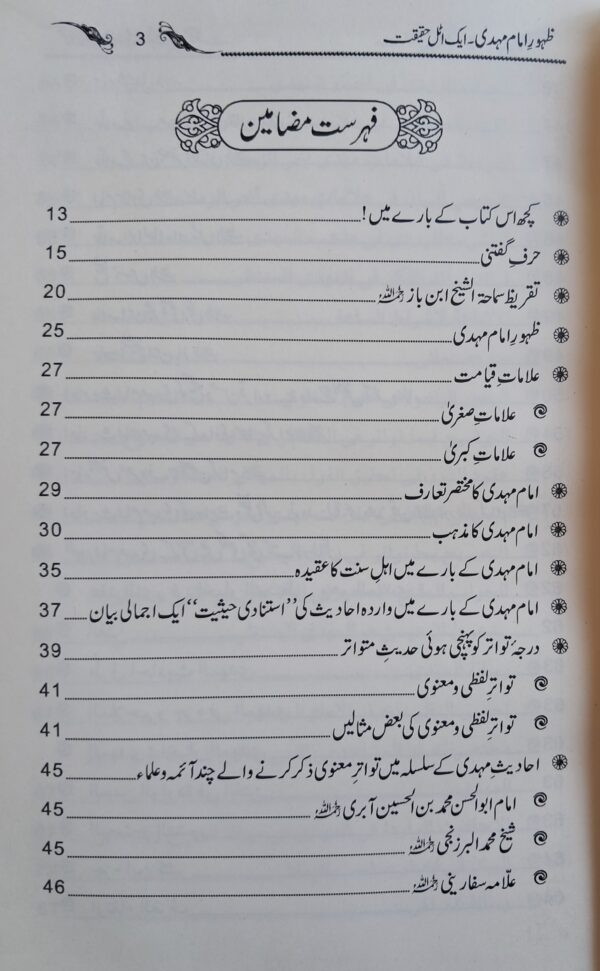 ظہورِ امام مہدی۔ ایک اٹل حقیقت 3
فہرست مضامین
کچھ اس کتاب کے بارے میں! 13
حرفِ گفتنی 15
تقریظ سماحۃ الشیخ ابن باز رحمہ اللہ 20
ظہورِ امام مہدی 25
علاماتِ قیامت 27
علاماتِ صغریٰ 27
علاماتِ کبریٰ 27
امام مہدی کا مختصر تعارف 29
امام مہدی کا مذہب 30
امام مہدی کے بارے میں اہلِ سنت کا عقیدہ 35
امام مہدی کے بارے میں واردہ احادیث کی ’’استنادی حیثیت‘‘ ایک اجمالی بیان 37
درجۂ تواتر کو پہنچی ہوئی حدیثِ متواتر 39
تواترِ لفظی و معنوی 41
تواترِ لفظی و معنوی کی بعض مثالیں 41
احادیثِ مہدی کے سلسلہ میں تواترِ معنوی ذکر کرنے والے چند آئمہ و علماء 45
امام ابوالحسن محمد بن الحسین آبری رحمہ اللہ 45
شیخ محمد البرزنجی رحمہ اللہ 45
علّامہ سفارینی رحمہ اللہ 46